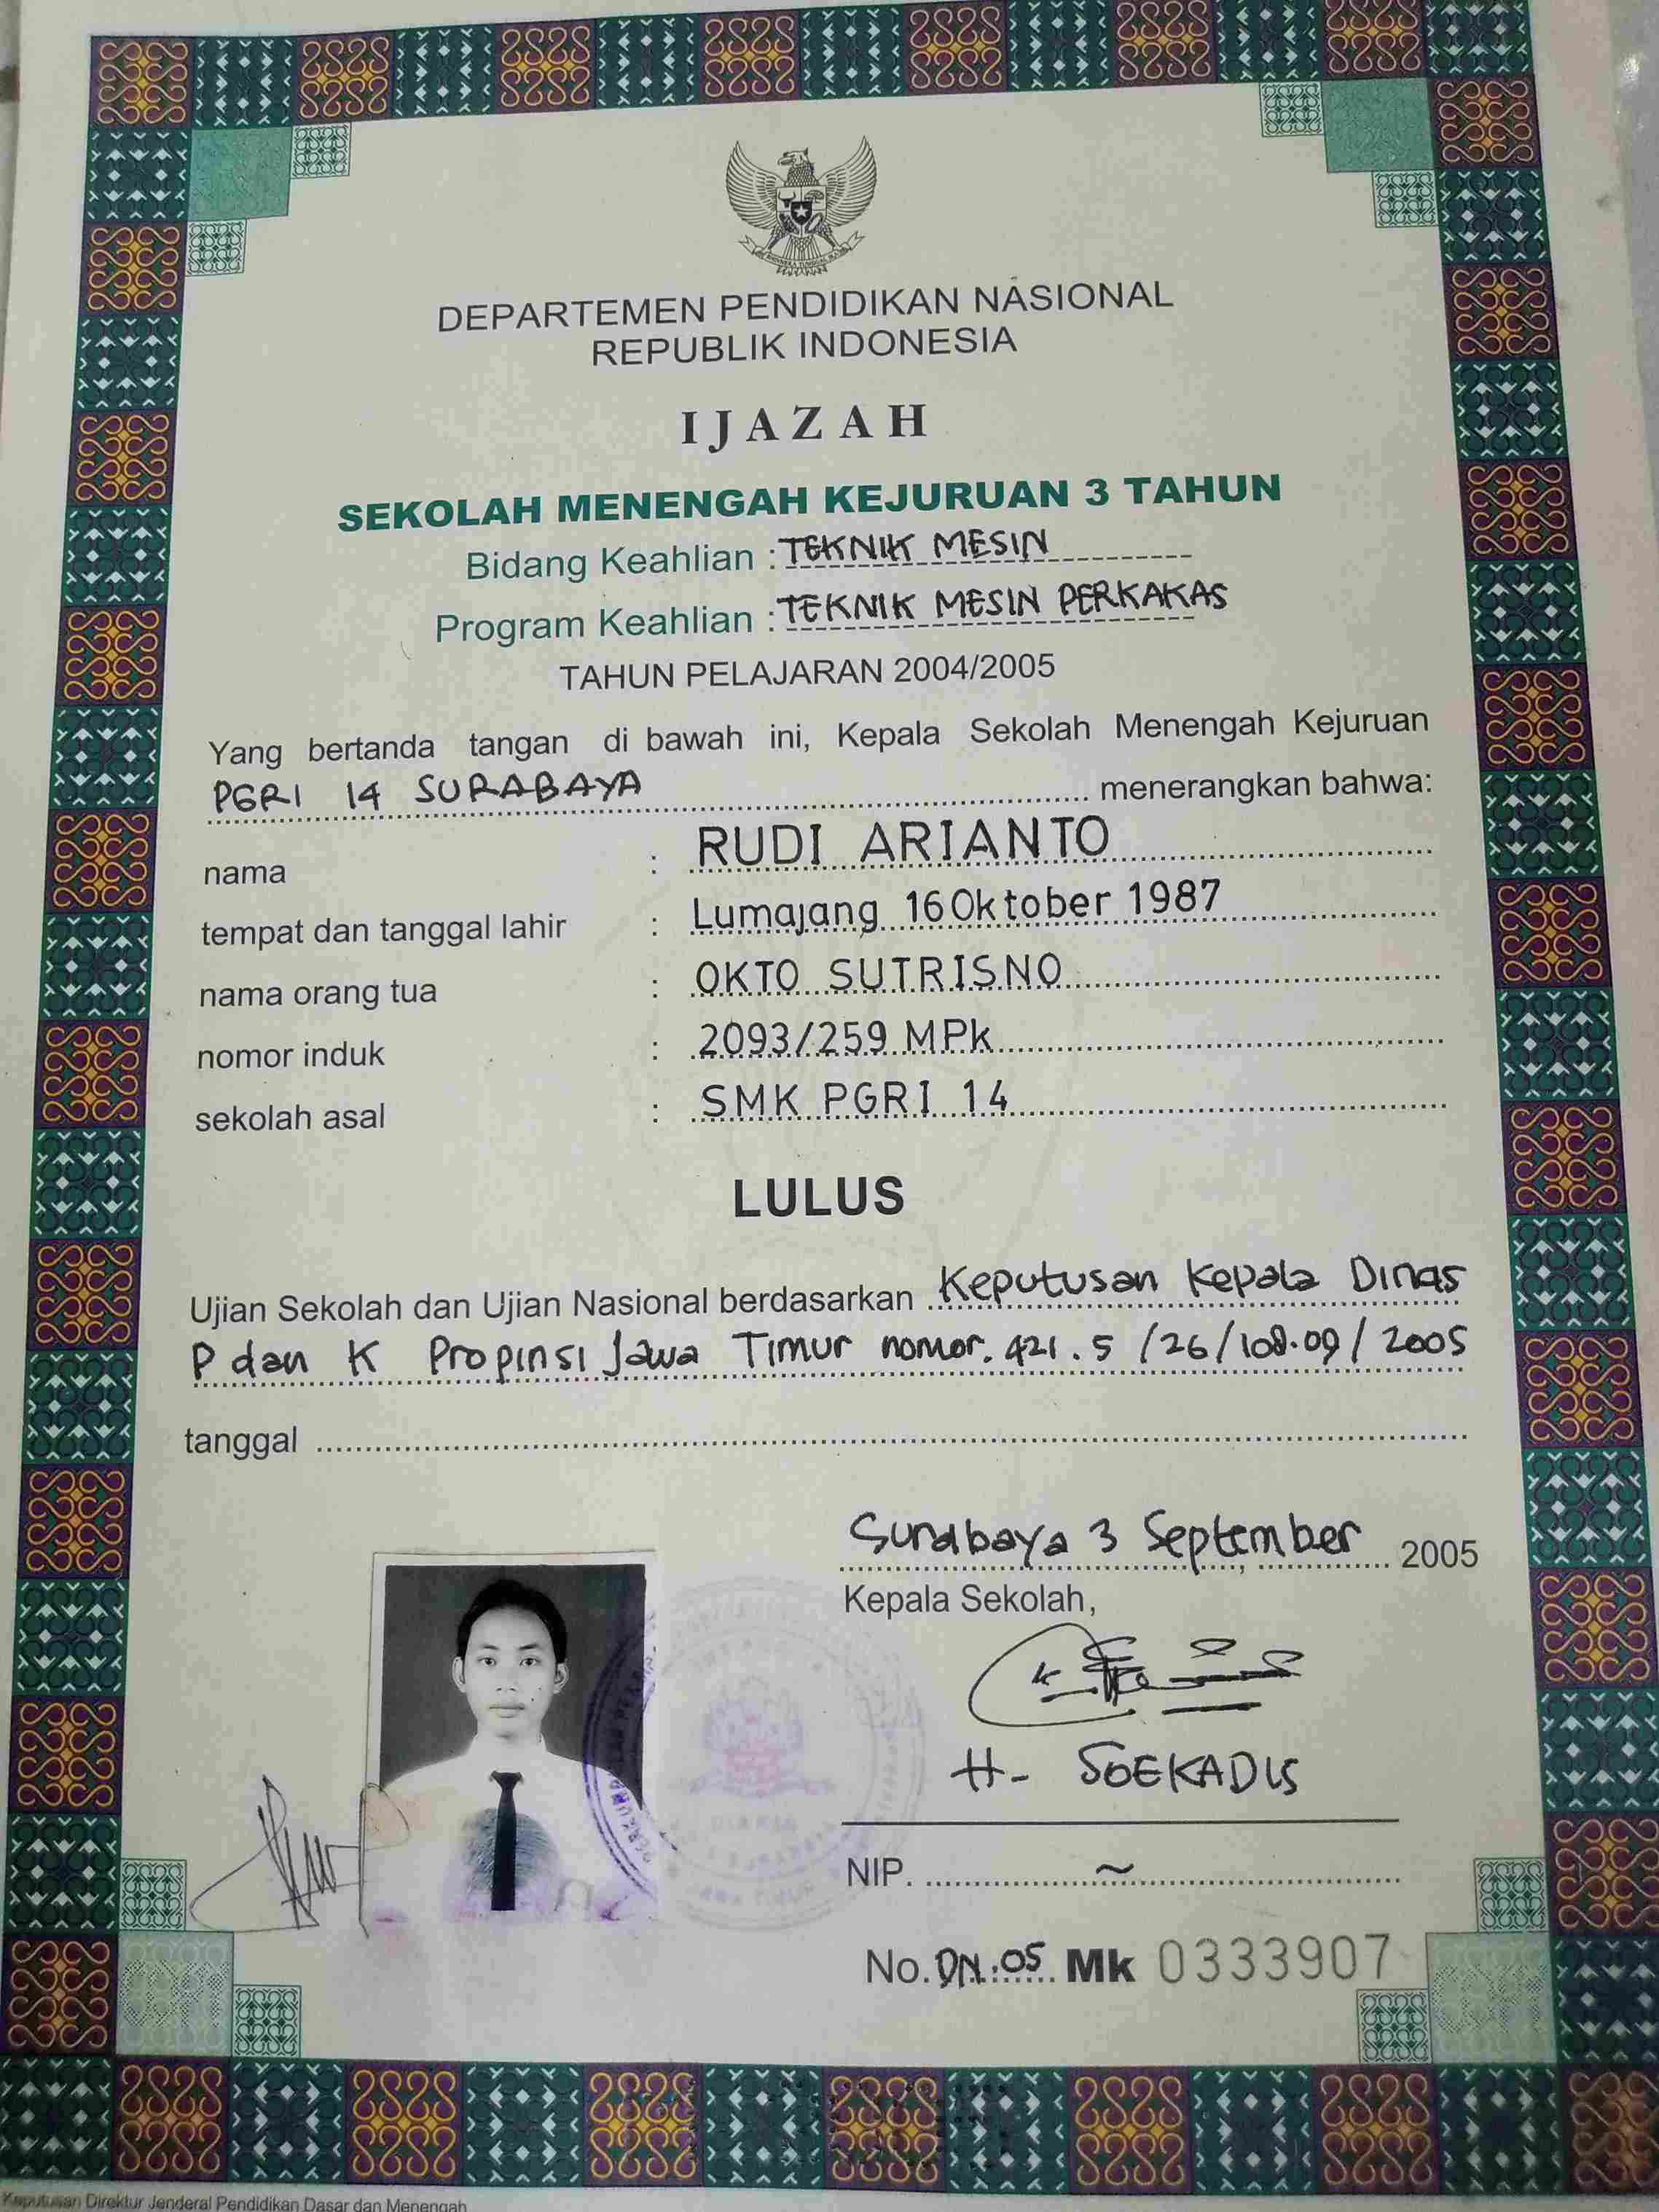 DEPARTEMEN PENDIDIKAN NASIONAL
REPUBLIK INDONESIA
IJAZAH
SEKOLAH MENENGAH KEJURUAN 3 TAHUN
Bidang Keahlian : TEKNIK MESIN
Program Keahlian : TEKNIK MESIN PERKAKAS
TAHUN PELAJARAN 2004/2005
Yang bertanda tangan di bawah ini, Kepala Sekolah Menengah Kejuruan
PGRI 14 SURABAYA menerangkan bahwa:
nama : RUDI ARIANTO
tempat dan tanggal lahir : Lumajang 16 Oktober 1987
nama orang tua : OKTO SUTRISNO
nomor induk : 2093/259 MPk
sekolah asal : SMK PGRI 14
LULUS
Ujian Sekolah dan Ujian Nasional berdasarkan Keputusan Kepala Dinas
P dan K Propinsi Jawa Timur nomor. 421.5/26/108.09/2005
tanggal
Surabaya 3 September, 2005
Kepala Sekolah,
H- SOEKADIS
NIP. ~
No. DN.05 Mk 0333907
Keputusan Direktur Jenderal Pendidikan Dasar dan Menengah